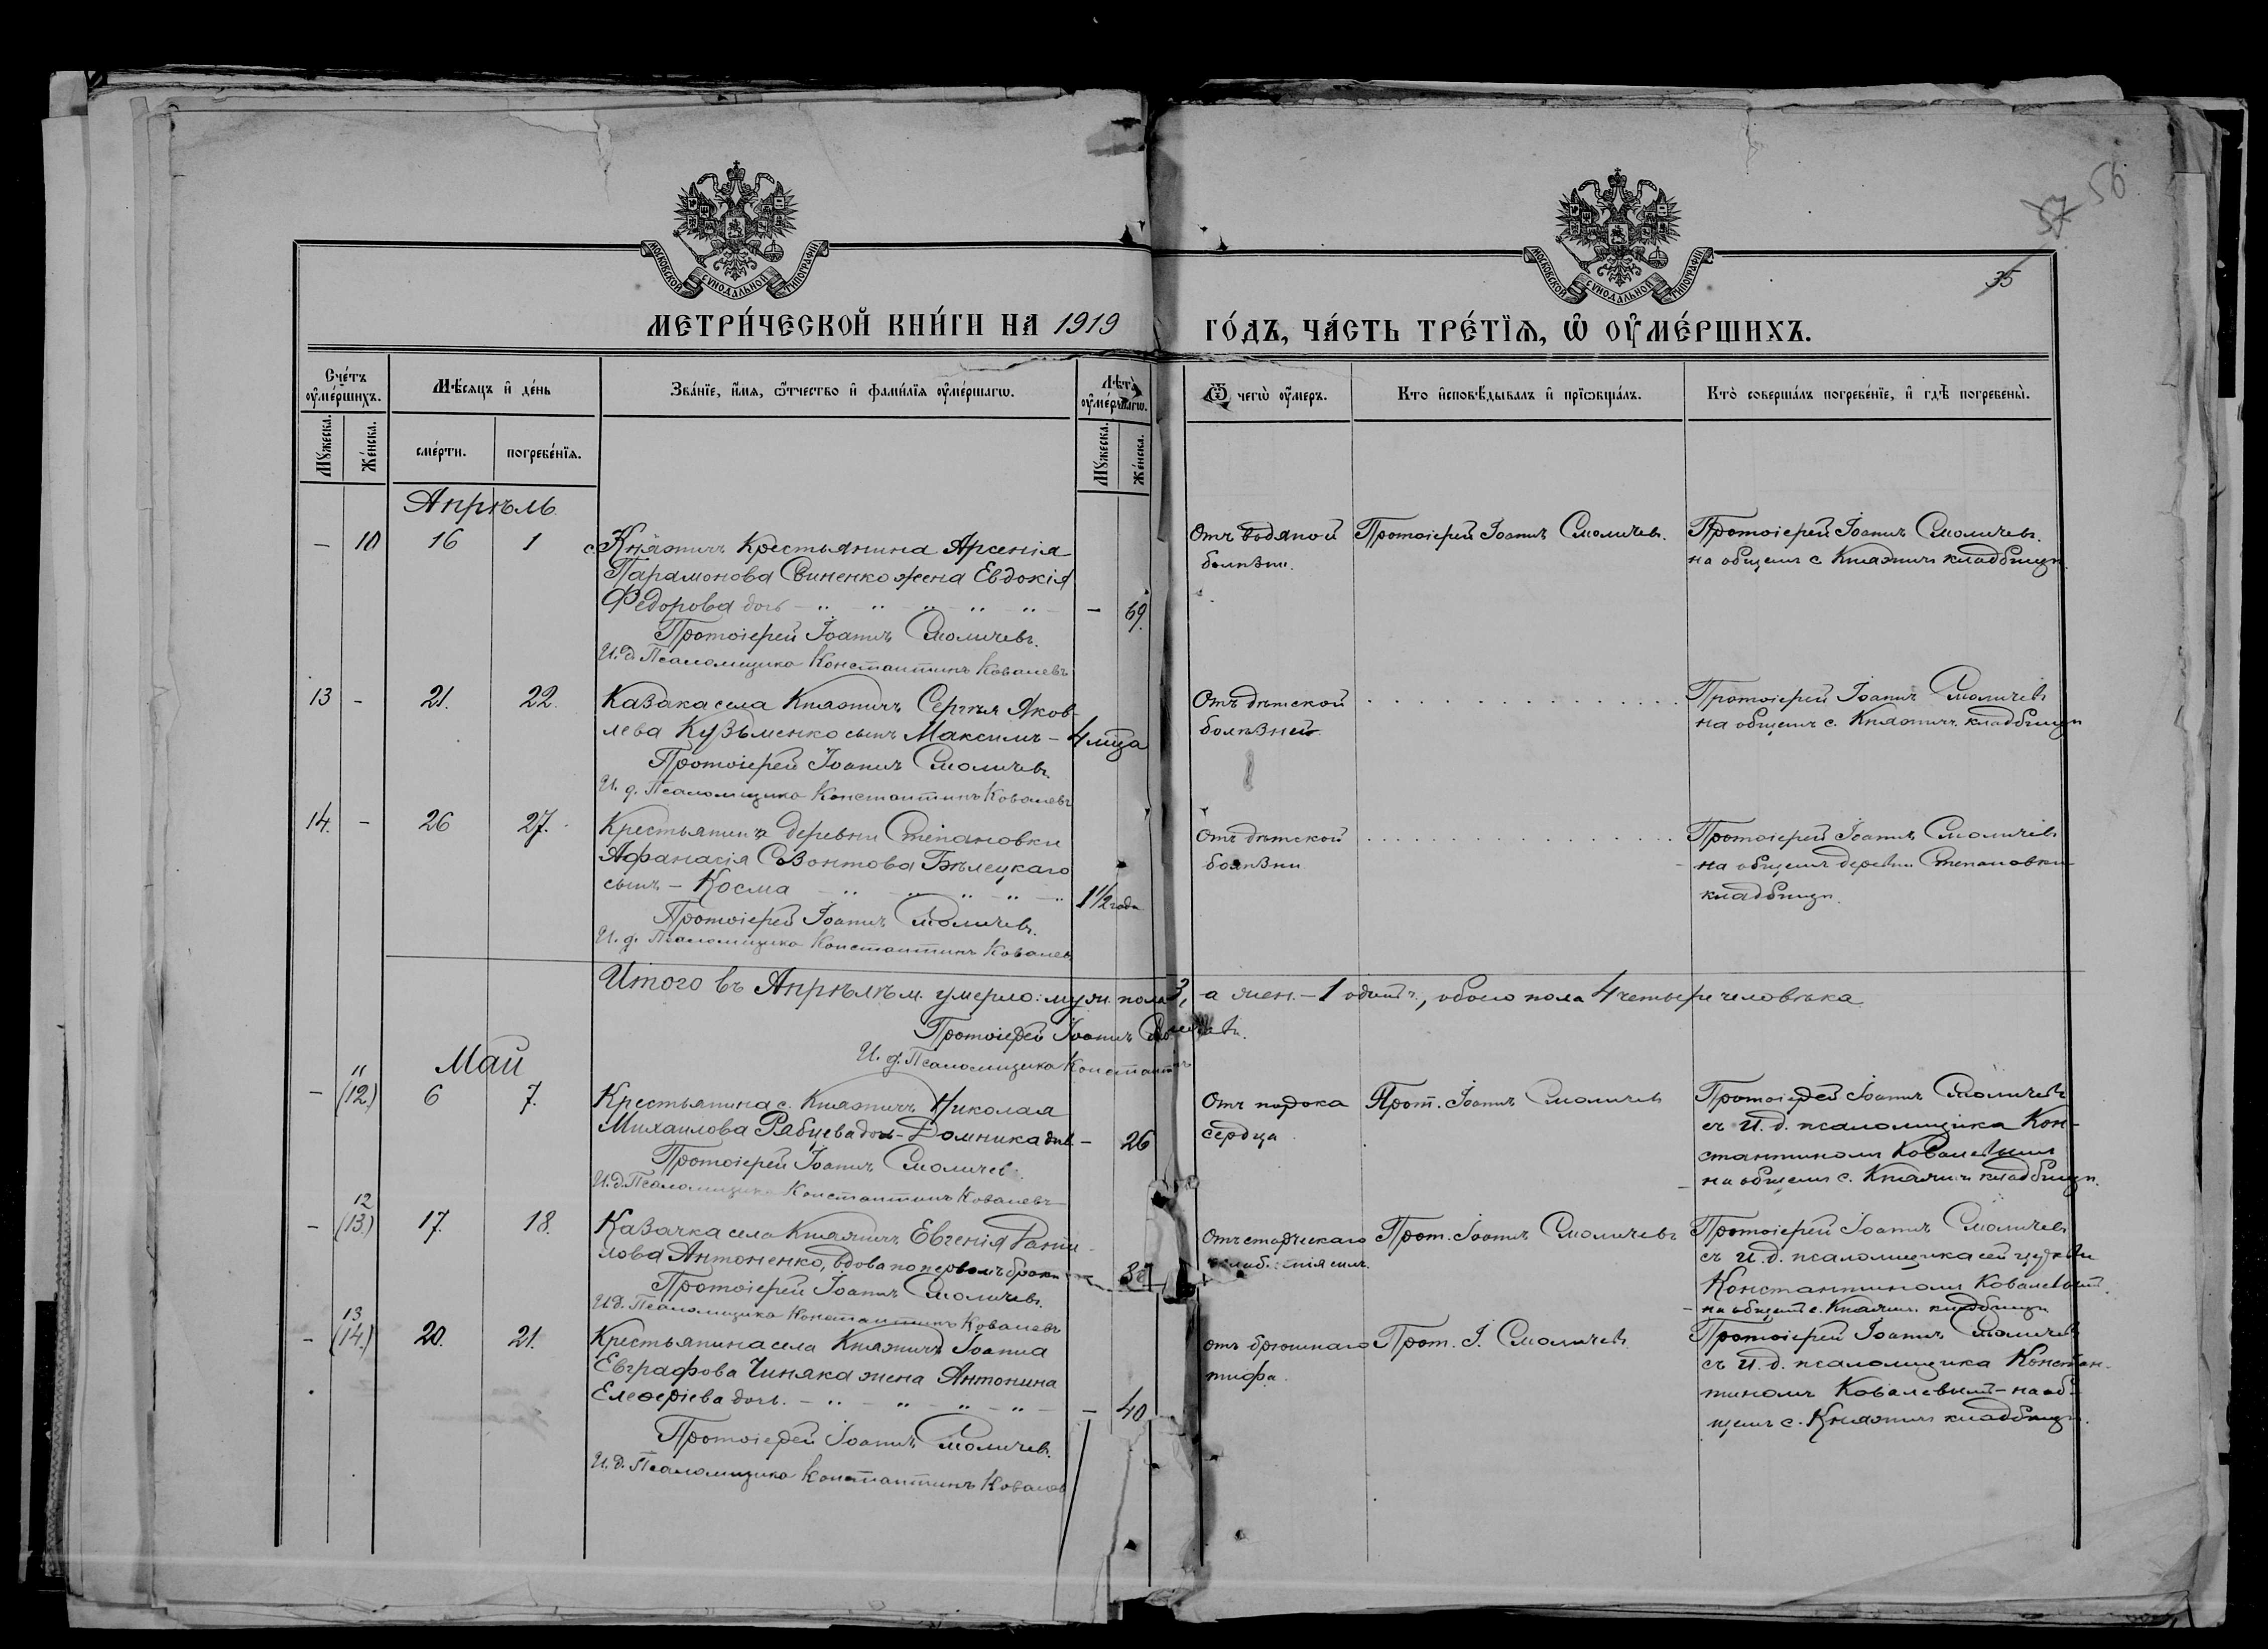 56
57
35
МОСКОВСКОЙ СѴНОДАЛЬНОЙ ТИПОГРАФІИ
МОСКОВСКОЙ СѴНОДАЛЬНОЙ ТИПОГРАФІИ
МЕТРИ́ЧЕСКОЙ КНИ́ГИ НА 1919 ГО́ДЪ, ЧА́СТЬ ТРЕ́ТІѦ, Ѡ҆ ОУ҆МЕ́РШИХЪ.
Сче́тъ оу҆ме́ршихъ.
Мꙋ́жеска.
Же́нска.
Мѣ́сяцъ и҆ де́нь
сме́рти.
погребе́нїѧ.
Зва́нїе, и҆́мѧ, ѻ҆́тчество и҆ фами́лїѧ оу҆ме́ршагѡ.
Лѣ́та оу҆ме́ршагѡ.
Мꙋ́жеска.
Же́нска.
Ѿ чегѡ̀ оу҆́меръ.
Кто и҆сповѣ́дывалъ и҆ прїѡбща́лъ.
Кто̀ соверша́лъ погребе́нїе, и҆ гдѣ̀ погребены̀.
Апрѣль
— 10 16 1 с. Княжичъ Крестьянина Арсенія
Парамонова Свиненко жена Евдокія
Федорова дочь — 69.
Протоіерей Іоаннъ Смоличевъ.
И. д. Псаломщика Константинъ Ковалевъ
Отъ водяной
болѣзни.
Протоіерей Іоаннъ Смоличевъ.
Протоіерей Іоаннъ Смоличевъ.
на общемъ с. Княжичъ кладбищѣ.
13 - 21. 22. Казака села Княжичъ Сергѣя Яков-
лева Кузьменко сынъ Максимъ – 4 мѣца
Протоіерей Іоаннъ Смоличевъ.
И. д. Псаломщика Константинъ Ковалевъ
Отъ дѣтской
болѣзней
Протоіерей Іоаннъ Смоличевъ
на общемъ с. Княжичъ кладбищѣ
14. - 26 27. Крестьянина деревни Степановки
Афанасія Созонтова Бѣлецкаго
сынъ – Косма 1 1/2 года
Протоіерей Іоаннъ Смоличевъ.
И. д. Псаломщика Константинъ Ковалевъ
Отъ дѣтской
болѣзни
Протоіерей Іоаннъ Смоличевъ
на общемъ деревни Степановки
кладбищѣ.
Итого въ Апрѣлѣ м. умерло: муж. пола 3, а жен. – 1 , обоего пола 4 четыре человѣка
Протоіерей Іоаннъ Смоличевъ.
И. д. Псаломщика Константинъ
Май
11
— (12.) 6 7. Крестьянина с. Княжичъ Николая
Михаилова Рябцева дочь – Домника дѣв. – 26
Протоіерей Іоаннъ Смоличев.
И. д. Псаломщика Константинъ Ковалевъ
Отъ порока
сердца
Прот. Іоаннъ Смоличев
Протоіерей Іоаннъ Смоличевъ
съ И. д. псаломщика Кон-
стантиномъ Ковалевымъ
на общемъ с. Княжичъ кладбищѣ.
12
— (13.) 17. 18. Казачка села Княжичъ Евгенія
лова Антоненко, вдова по первомъ бракѣ
Протоіерей Іоаннъ Смоличевъ.
И. д. Псаломщика Константинъ Ковалевъ
Отъ старческаго
силъ.
Прот. Іоаннъ Смоличевъ
Протоіерей Іоаннъ Смоличевъ
съ И. д. псаломщика сей церкви
Константиномъ Ковалевымъ.
на общемъ с. Княжич. кладбищѣ
13
- (14.) 20. 21. Крестьянина села Княжичъ Іоанна
Евграфова Чиняка жена Антонина
Елеѳеріева дочь. – 40
Протоіерей Іоаннъ Смоличевъ.
И. д. Псаломщика Константинъ Ковалев
отъ брюшнаго
тифа.
Прот. І. Смоличев
Протоіерей Іоаннъ Смоличевъ
съ И. д. псаломщика Констан-
тиномъ Ковалевымъ – на об-
щемъ с. Княжичъ кладбищѣ.